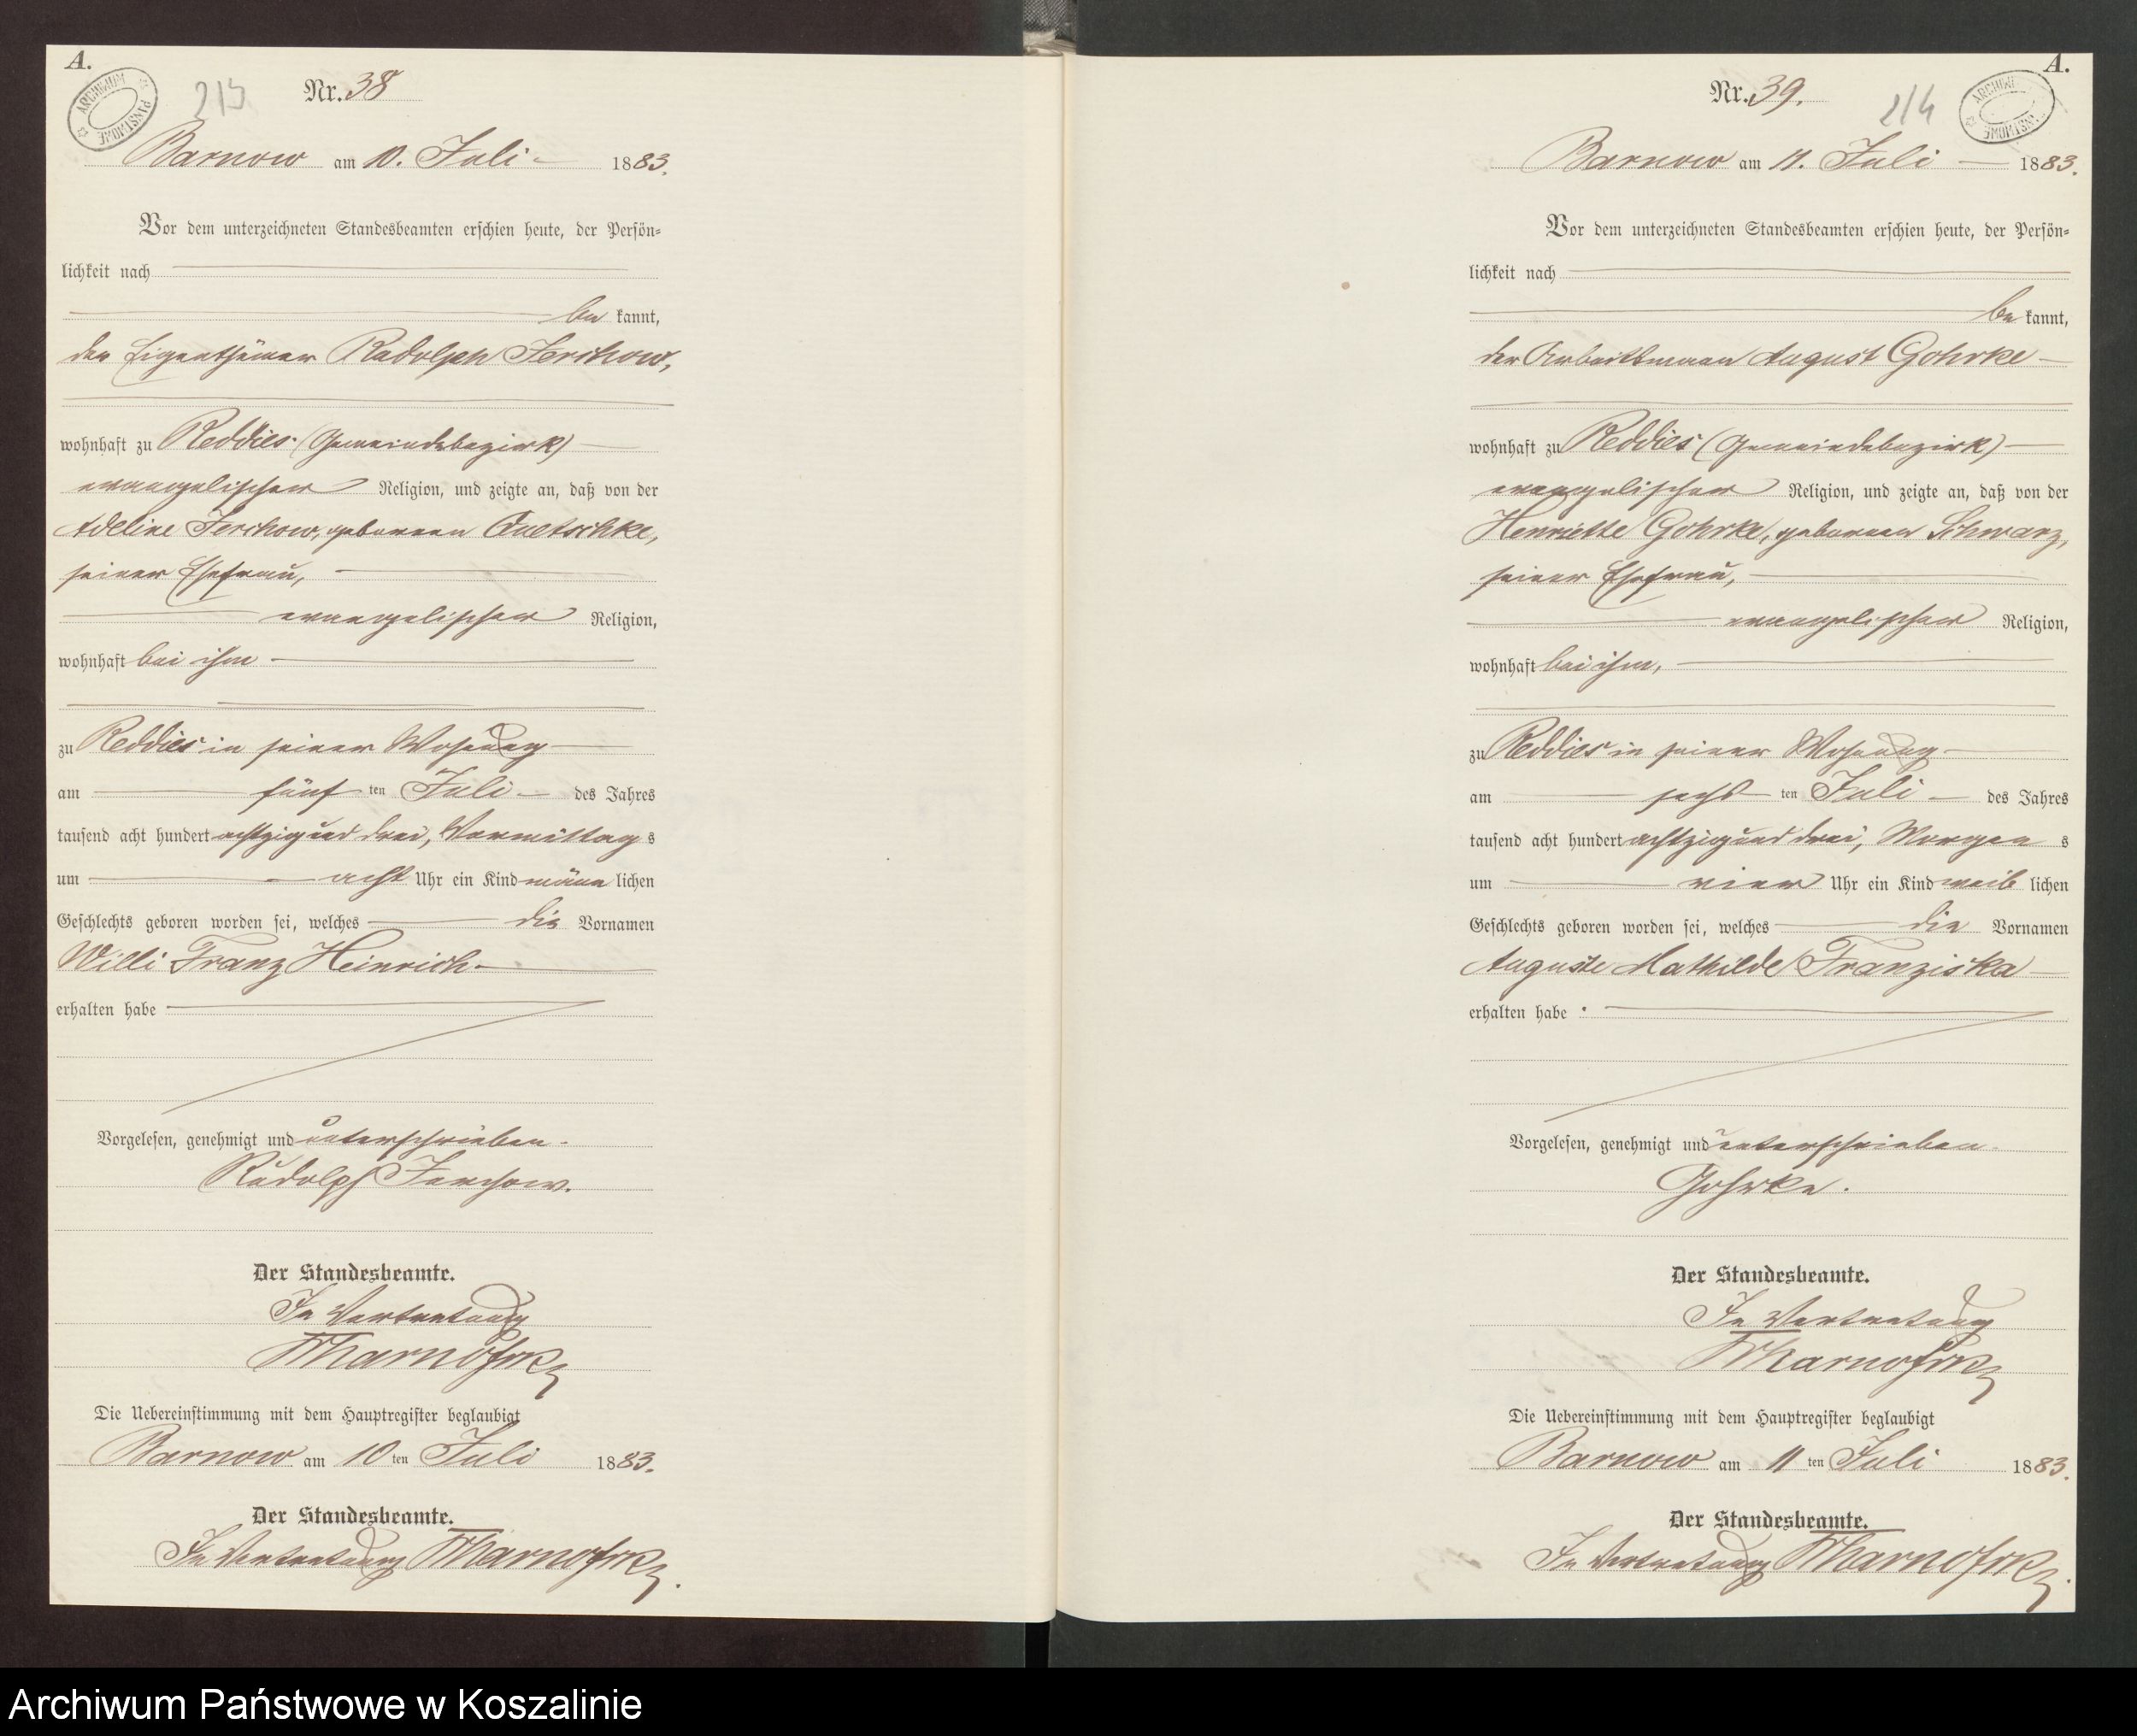 A.
ARCHIWUM PAŃSTWOWE
213
Nr. 38
Barnow am 10. Juli 1883.
Vor dem unterzeichneten Standesbeamten erschien heute, der Persön=
lichkeit nach
be kannt,
der Eigenthümer Rudolph Jerchow,
wohnhaft zu Reddies (Gemeindebezirk)
evangelischer Religion, und zeigte an, daß von der
Adeline Jerchow, geborenen Quetschke,
seiner Ehefrau,
evangelischer Religion,
wohnhaft bei ihm
zu Reddies in seiner Wohnung
am fünf ten Juli des Jahres
tausend acht hundert achtzig und drei, Vormittag s
um acht Uhr ein Kind männ lichen
Geschlechts geboren worden sei, welches die Vornamen
Willi Franz Heinrich
erhalten habe
Vorgelesen, genehmigt und unterschrieben.
Rudolph Jerchow.
Der Standesbeamte.
In Vertretung
Die Uebereinstimmung mit dem Hauptregister beglaubigt
Barnow am 10 ten Juli 1883.
Der Standesbeamte.
In Vertretung
A.
ARCHIWUM PAŃSTWOWE
214
Nr. 39.
Barnow am 11. Juli 1883.
Vor dem unterzeichneten Standesbeamten erschien heute, der Persön=
lichkeit nach
be kannt,
der Arbeitsmann August Gohrke
wohnhaft zu Reddies (Gemeindebezirk)
evangelischer Religion, und zeigte an, daß von der
Henriette Gohrke, geborenen Schwarz,
seiner Ehefrau,
evangelischer Religion,
wohnhaft bei ihm,
zu Reddies in seiner Wohnung
am sechs ten Juli des Jahres
tausend acht hundert achtzig und drei, Morgen s
um vier Uhr ein Kind weib lichen
Geschlechts geboren worden sei, welches die Vornamen
Auguste Mathilde Franziska
erhalten habe
Vorgelesen, genehmigt und unterschrieben.
Gohrke.
Der Standesbeamte.
In Vertretung
Die Uebereinstimmung mit dem Hauptregister beglaubigt
Barnow am 11 ten Juli 1883.
Der Standesbeamte.
In Vertretung
Archiwum Państwowe w Koszalinie